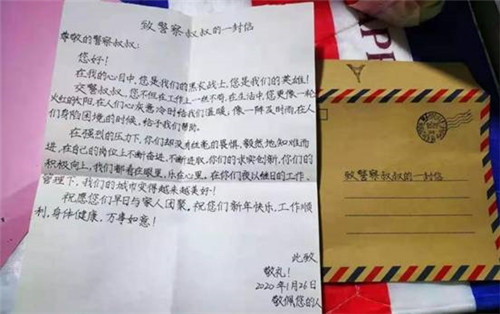 致警察叔叔的一封信
尊敬的警察叔叔：
您好！
在我的心目中，您是我们的黑衣战士，您是我们的英雄！
交警叔叔，您不但在工作上一丝不苟，在生活中，您更像一轮
火红的太阳，在人们心灰意冷时给我们温暖，像一阵及时雨，在人
们身陷困境的时候，给予我们帮助。
在强烈的压力下，你们却没有丝毫的畏惧，毅然地知难而
进，在自己的岗位上不断奋进，不断进取，你们的求实创新，你们的
积极向上，我们都看在眼里，乐在心里。在你们夜以继日的工作、
管理下，我们的城市变得越来越美好！
祝愿您们早日与家人团聚，祝您们新年快乐，工作顺
利，身体健康，万事如意！
此致
敬礼！
2020年1月26日
敬佩您的人
致警察叔叔的一封信